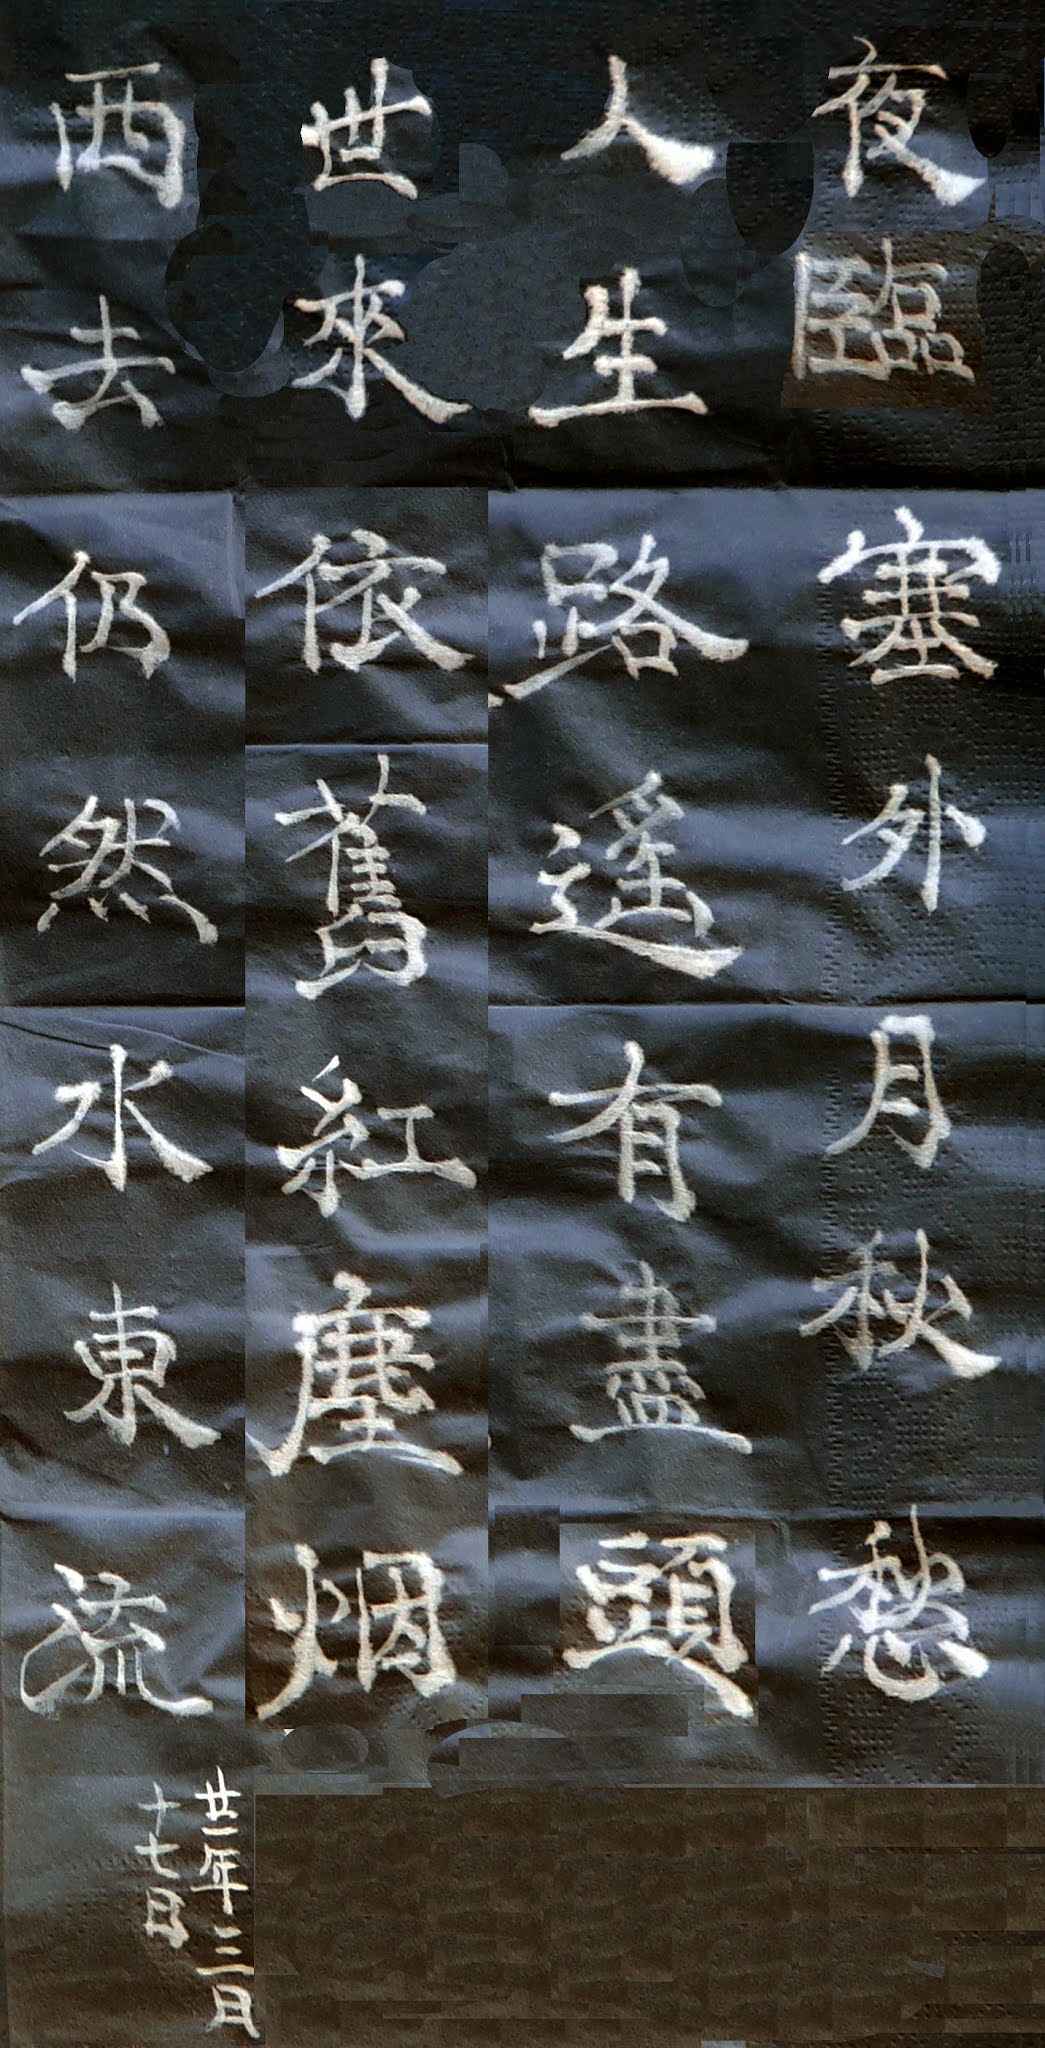 夜臨塞外月秋愁
人生路遙有盡頭
世來依舊紅塵烟
西去仍然水東流
廿一年三月
十七日